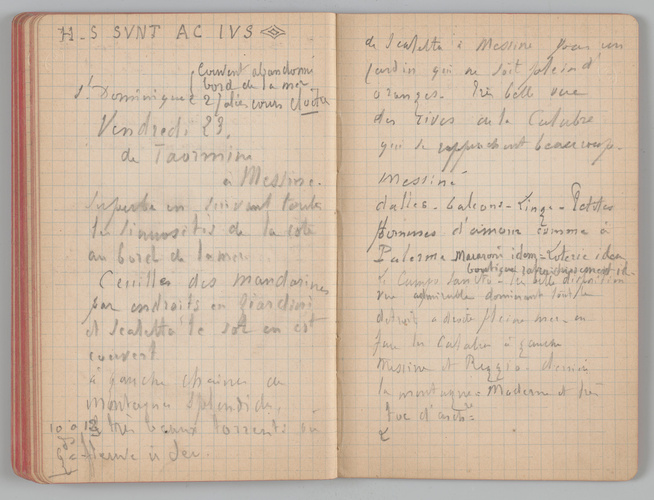 H-S SVNT AC IVS
Couvent abandonné
bord de la mer
St Dominique 2 jolies cours cloître
Vendredi 23.
de Taormine
à Messine.
Superbe en suivant toutes
les sinuosités de la côte
au bord de la mer
Ceuilles des mandarines
par endroits en giardini
et Scaletta le sol en est
couvert
à gauche chaines de
montagnes splendide,
très beaux torrents ou
fleuve à sec.
de Scaletta à Messine pour un
jardin qui ne soit plein d'
oranges. Très belle vue
des rives de la Calabre
qui se rapprochent beaucoup.
Messine
dalles - balcons - Linge - Petites
pommes d'amour comme à
Palerme Macaroni idem - Loterie idem
boutique rafraichissement id.
Le Campo Santo - très belle disposition
vue admirable dominant tout le
détroit à droite pleine mer - en
face la Calabre à gauche
Messine et Reggio. derrière
la montagne - Moderne et très